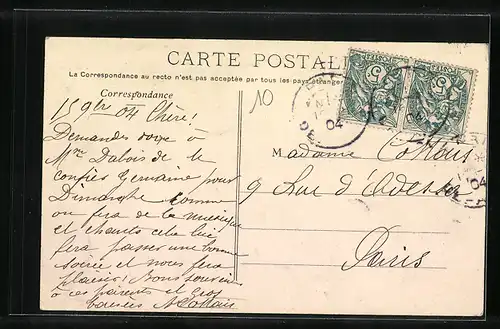 CARTE POSTALE
La Correspondance au recto n'est pas acceptée par tous les pays étrangers
Correspondance
10
15 9bre 04 Chère!
Demandes donc à
Mme Dubois de te
confier Germaine pour
Dimanche comme
on fera de la musique
et chants cela lui
fera passer une bonne
soirée et nous fera
plaisir! bons souvenirs
à tes parents et gros
baisers
04
Madame
9 Rue d'Odessa
Paris
04